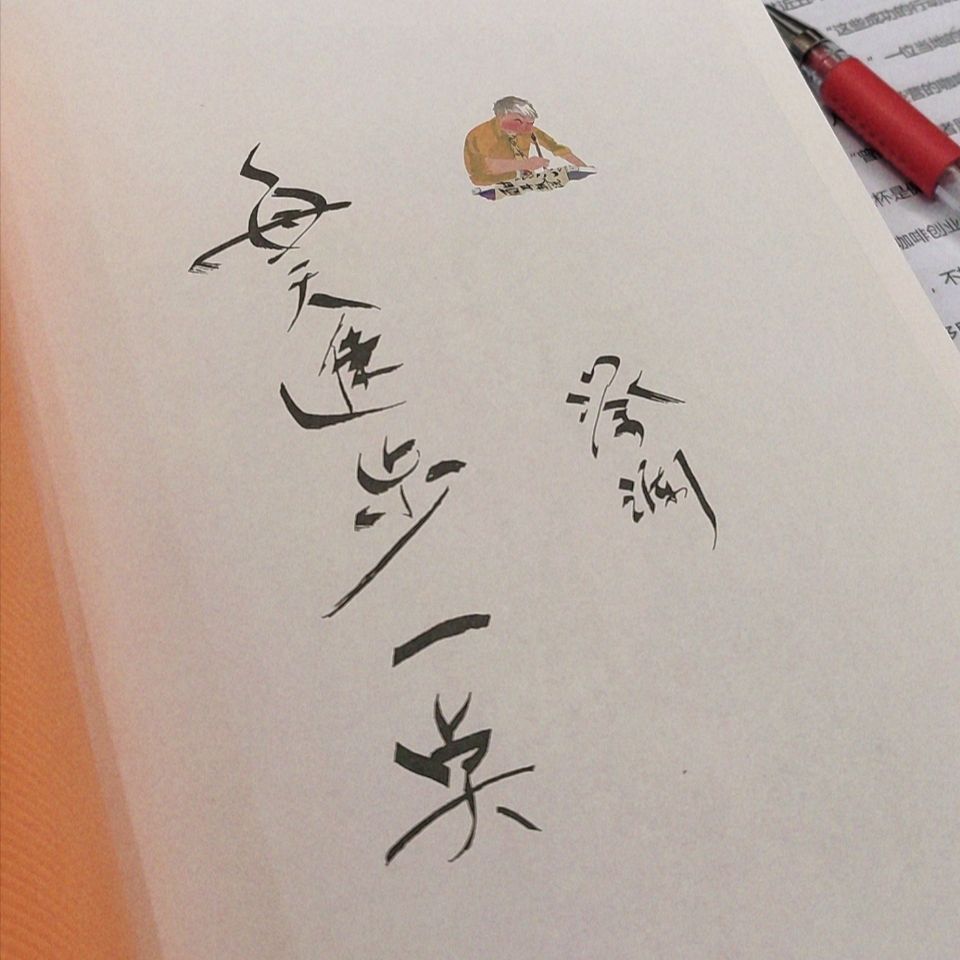 每天進步一点
蔡澜
“这些成功的行动
” 一位当地的
营的咖
杯是
咖啡创业
，不